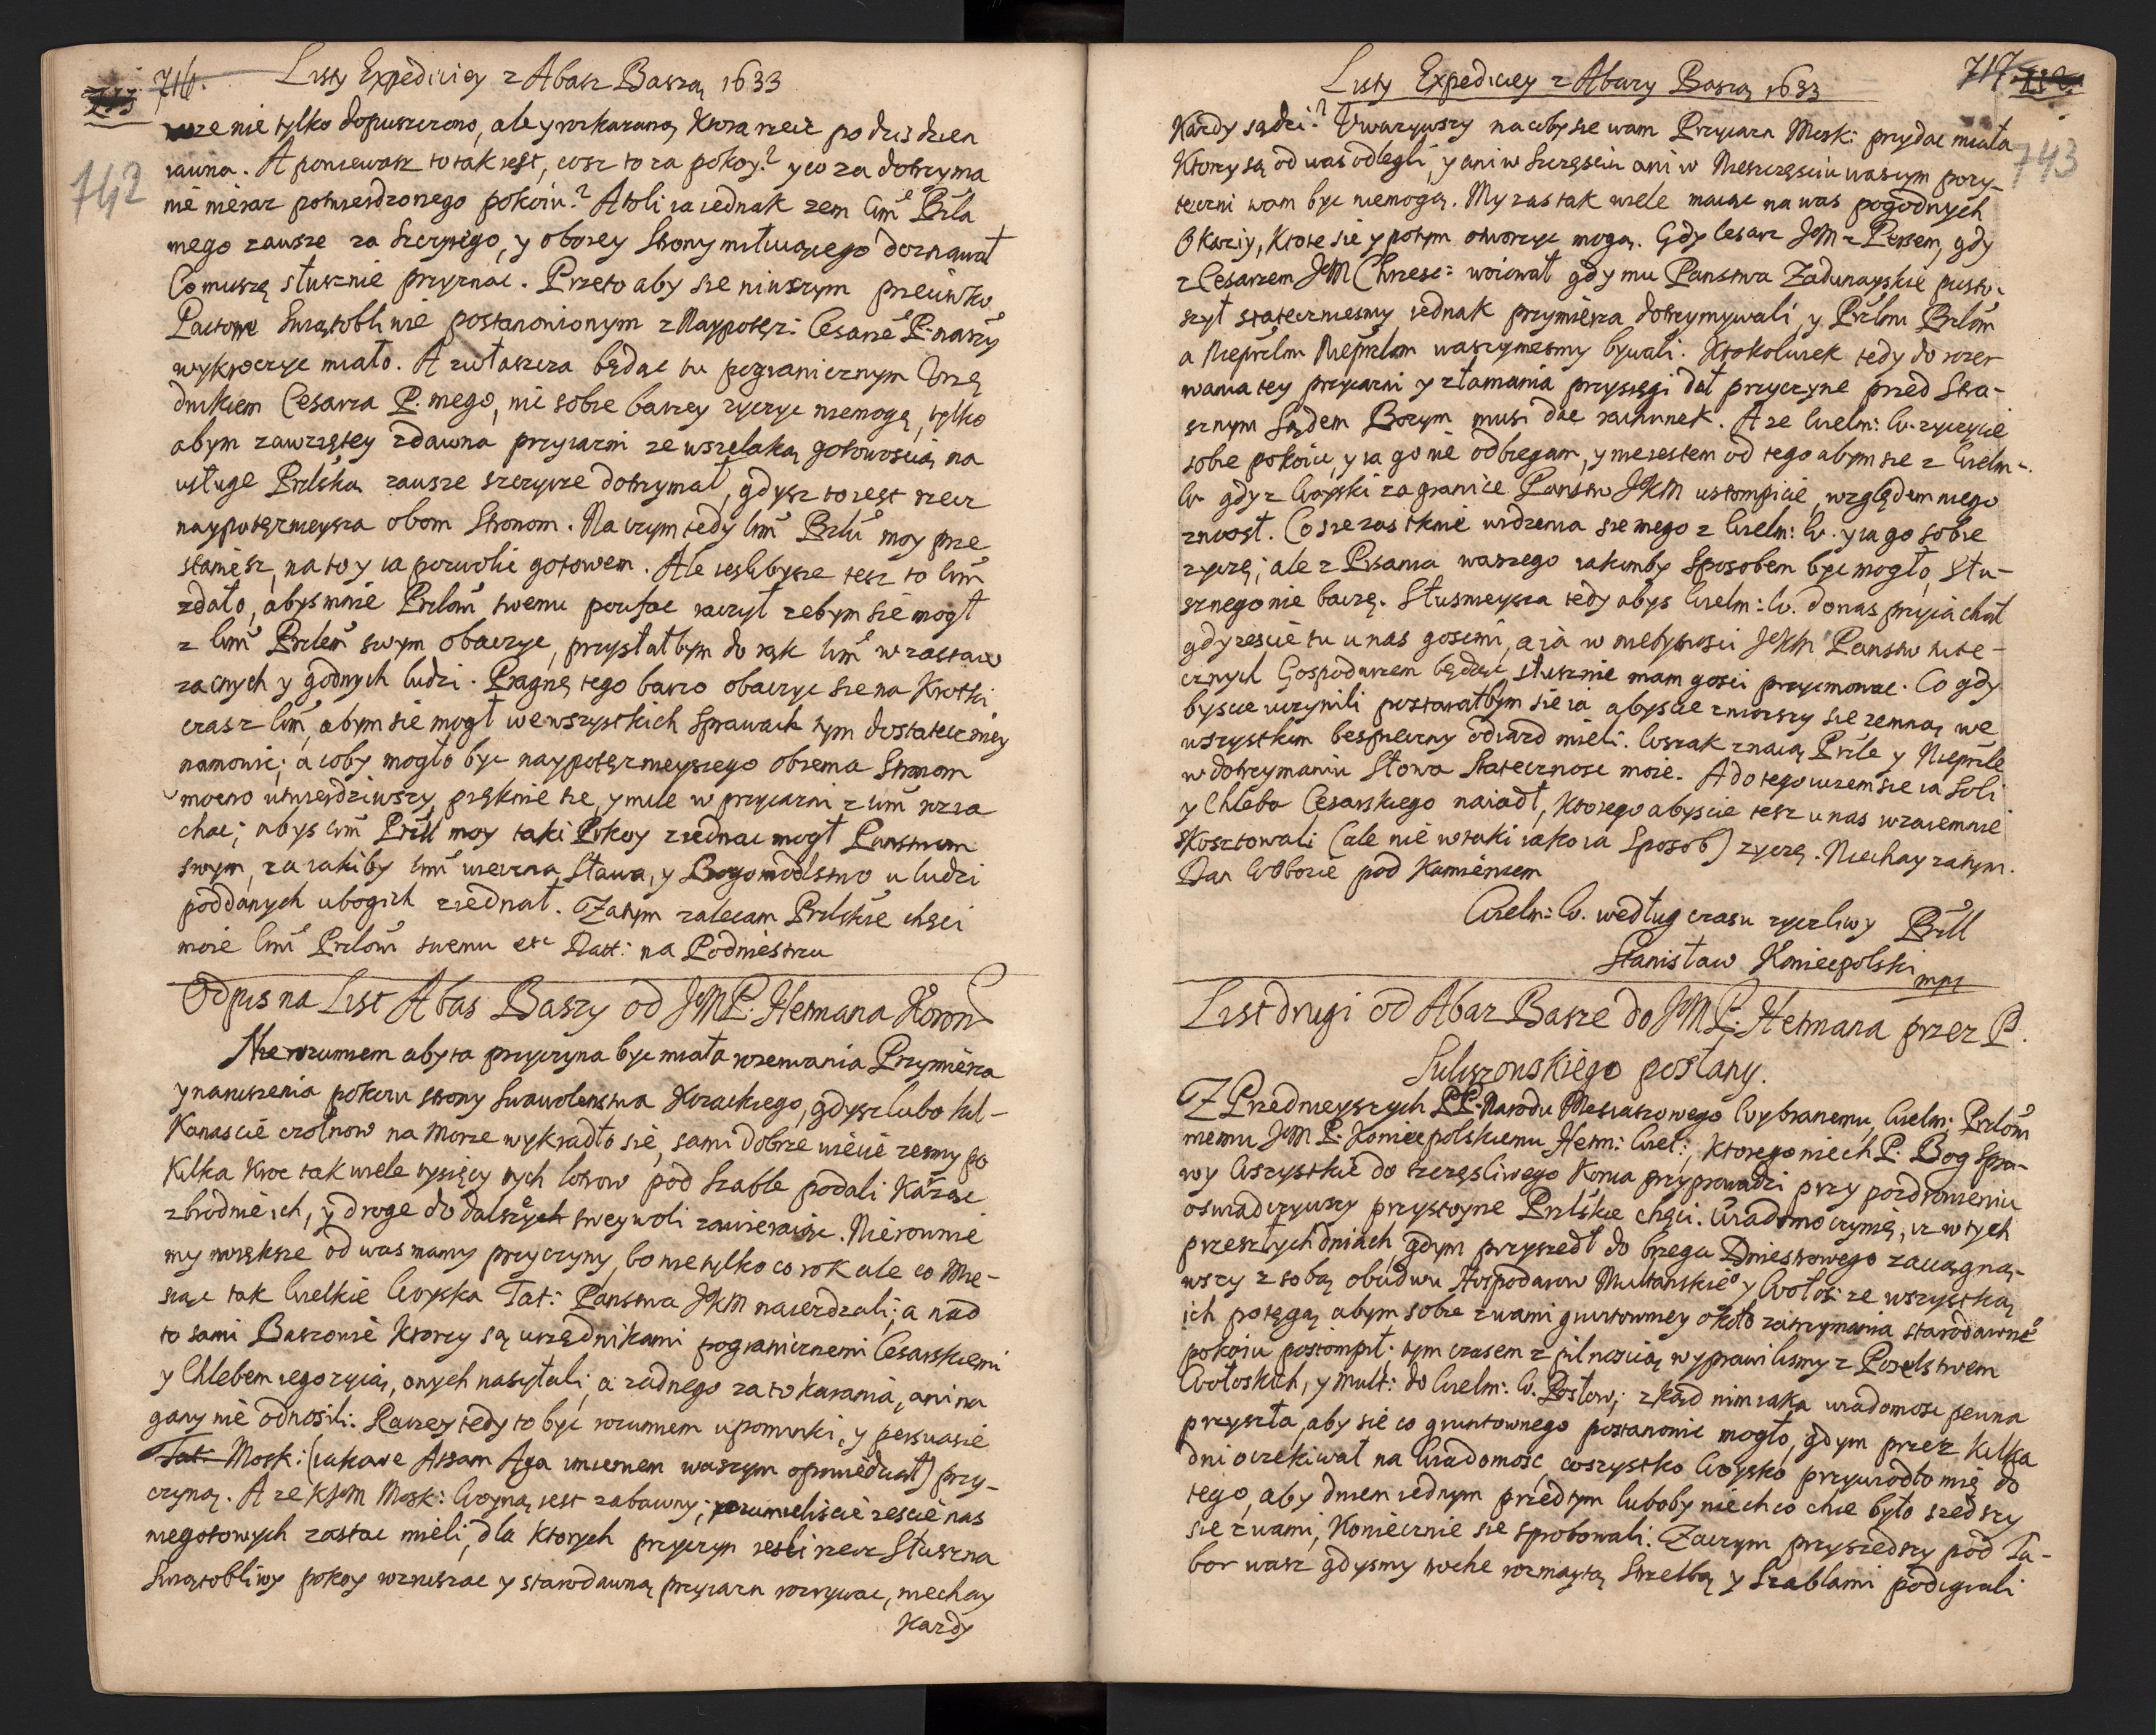 716. Listy Expediciey z Abasz Baszą 1633
742
nie tylko dopuszczono, ale y rozkazano, Ktora rzecz po dziś dzien
iawna. A poniewasz to tak iest, cosz to za pokoy? y co za dotrzyma
nie nieraz potwierdzonego pokoiu? Atoli ia iednak zem Wmᶜ Prła
mego zawsze za Szczyrego, y oboiey Strony miłuiącego doznawał
Co muszę słusznie przyznac. Przeto aby sie ni wczym przeciwko
Pactom Swiątobliwie postanowionym z Naypotęż: Cesarzᵉ P. naszyᵐ
wykroczyc miało. A zwłaszcza będąc tu pogranicznym Vrzę
dnikiem Cesarza P. mego, nic sobie barzey zyczyc niemogę, tylko
abym zawziętey zdawna przyiazni ze wszelaką gotowoscią na
usługe Prłską zawsze szczyrze dotrzymał, gdysz to iest rzecz
naypotęzneysza obom Stronom. Na czym tedy Wmᶜ Prłu moy prze
staniesz, na to y ia pozwolic gotowem. Ale iesliby sie tesz to Wmᶜ
zdało, abys mnie Prłowi swemu poufac raczył zebym sie mogł
z Wmᶜ Prłem swym obaczyc, przysłałbym do rąk Wmᶜ w zastaw
zacnych y godnych ludzi. Pragnę tego barzo obaczyc sie na Krotki
czas z Wmᶜ, abym sie mogł we wszystkich Sprawach tym dostateczniey
namowic; a coby mogło byc naypotęzneyszego obiema Stronom
mocno utwierdziwszy, pięknie sie, y mile w przyiazni z Wmᶜ rozia
chac; abys Wmᶜ Prłł moy taki Pokoy ziednac mogł Panstwom
swym, za iakiby Wmᶜ wieczna Sława, y Bogomodlstwo u ludzi
poddanych ubogich ziednał. Zatym zalecam Prłskie chęci
moie Wmᶜ Prłowi swemu etc Datt: na Podniestrzu
Odpis na List Abas Baszy od JeM P. Hetmana Koron
Nie rozumiem aby ta przyczyna byc miała rozerwania Przymierza
y naruszenia pokoiu strony Swawolenstwa Kozackiego, gdysz lubo kil-
Kanascie czołnow na Morze wykradło się, sami dobrze wiecie zesmy po
Kilka Kroc tak wiele tysięcy tych łotrow pod Szable podali Karząc
zbrodnie ich, y droge do dalszych swey woli zawieraiąc. Nierownie
my większe od was mamy przyczyny, bo nie tylko co rok ale co Mie-
siąc tak Wielkie Woyska Tat: Panstwa JKM naiezdzali; a nad
to sami Baszowie Ktorzy są urzędnikami pogranicznemi Cesarskiemi
y Chlebem iego zyią, onych nasyłali, a zadnego za to karania, ani na
gany nie odnosili. Raczey tedy to byc rozumiem upominki, y persuasie
Mosk: (iako ze Assam Aga imieniem waszym opowiedział) przy-
czyną. A ze KJeM Mosk: Woyną iest zabawny; rozumieliscie zescie nas
niegotowych zastac mieli, dla ktorych przyczyn iesli rzecz Słuszna
Swiątobliwy pokoy wzruszac y starodawną przyiazn rozrywac, niechay
Kazdy
Listy Expediciey z Abazy Baszą 1633 717
743
Kazdy sądzi? Uwazywszy na coby sie wam Przyiazn Mosk: przydac miała
Ktorzy są od was odlegli, y ani w Szczęsciu ani w Nieszczęsciu waszym poży-
teczni wam byc niemogą. My zas tak wiele maiąc na was pogodnych
Okaziy, Ktore sie y potym otworzyc mogą. Gdy Cesarz JeM z Persem, gdy
z Cesarzem JeM Chrzesc: woiował gdy mu Panstwa Zadunayskie pusto-
szył statecznesmy iednak przymierza dotrzymywali, y Prłom Prłom
a Nieprłm Nieprłom waszymesmy bywali. Ktokolwiek tedy do rozer
wania tey przyiazni y złamania przysięgi dał przyczyne przed Stra-
sznym Sądem Bozym musi dac rachunek. A ze Wielm: W. zyczycie
sobie pokoiu, y ia go nie odbiegam, y nie iestem od tego abym sie z Wielm:
W gdy z Woyski za granice Panstw JKM ustompicie, względem niego
znioś ł. Co sie zas tknie widzenia sie mego z Wielm: W. y ia go sobie
zyczę; ale z Pisania waszego iakimby Sposobem byc mogło, Słu-
sznego nie baczę. Słuszneysza tedy abys Wielm: W. do nas przyiachał
gdyzescie tu u nas goscmi, a ia w niebytnosci JKM Panstw tute-
cznych Gospodarzem będąc słusznie mam gosci przyimowac. Co gdy
byscie uczynili postarałbym sie ia abyscie zniowszy się zemną we
wszystkim bespieczny odiazd mieli. Wszak znaią Prłe y Nieprłe
w dotrzymaniu Słowa Statecznosc moie. A do tego wiem sie ia Soli
y Chleba Cesarskiego naiadł, Ktorego abyscie tesz u nas wzaiemnie
skosztowali (ale nie w taki iako ia Sposob) zyczę. Niechay zatym.
Dan W Obozie pod Kamiencem
Wielm: W. według czasu zyczliwy Prłł
Stanisław Koniecpolski
mpr
List drugi od Abaz Basze do JM P. Hetmana przez P.
Suliszowskiego posłany.
Z Przednieyszych PP. Narodu Messiaszowego Wybranemu, Wielm: Prłowi
memu JeM P. Koniecpolskiemu Hetm: Wiel:, Ktorego niech P. Bog Spra-
wy Wszystkie do szczęsliwego Konca przyprowadzi przy pozdrowieniu
oswiadczywszy przystoyne Prłskie chęci. Wiadomo czynię, iz w tych
przeszłych dniach, gdym przyszedł do brzegu Dniestrowego zaciągną-
wszy z sobą obudwu Hospodarow Multanskieᵒ y Wołos: ze wszystką
ich potęgą abym sobie z wami gruntowniey około zatrzymania starodawneᵒ
pokoiu postompił; tym czasem z pilnoscią wyprawilismy z Poselstwem
Wołoskich, y Mult: do Wielm: W. Posłow; zkąd nim iaka wiadomosc pewna
przyszła, aby sie co gruntownego postanowic mogło, gdym przez kilka
dni oczekiwał na Wiadomość, wszystko Woysko przywiodło mię do
tego, aby dniem iednym przedtym luboby niechco chce było szedszy
sie z wami, Koniecznie sie sprobowali. Zaczym przyszedszy pod Ta-
bor wasz gdysmy troche rozmaytą Strzelbą y Szablami podigrali